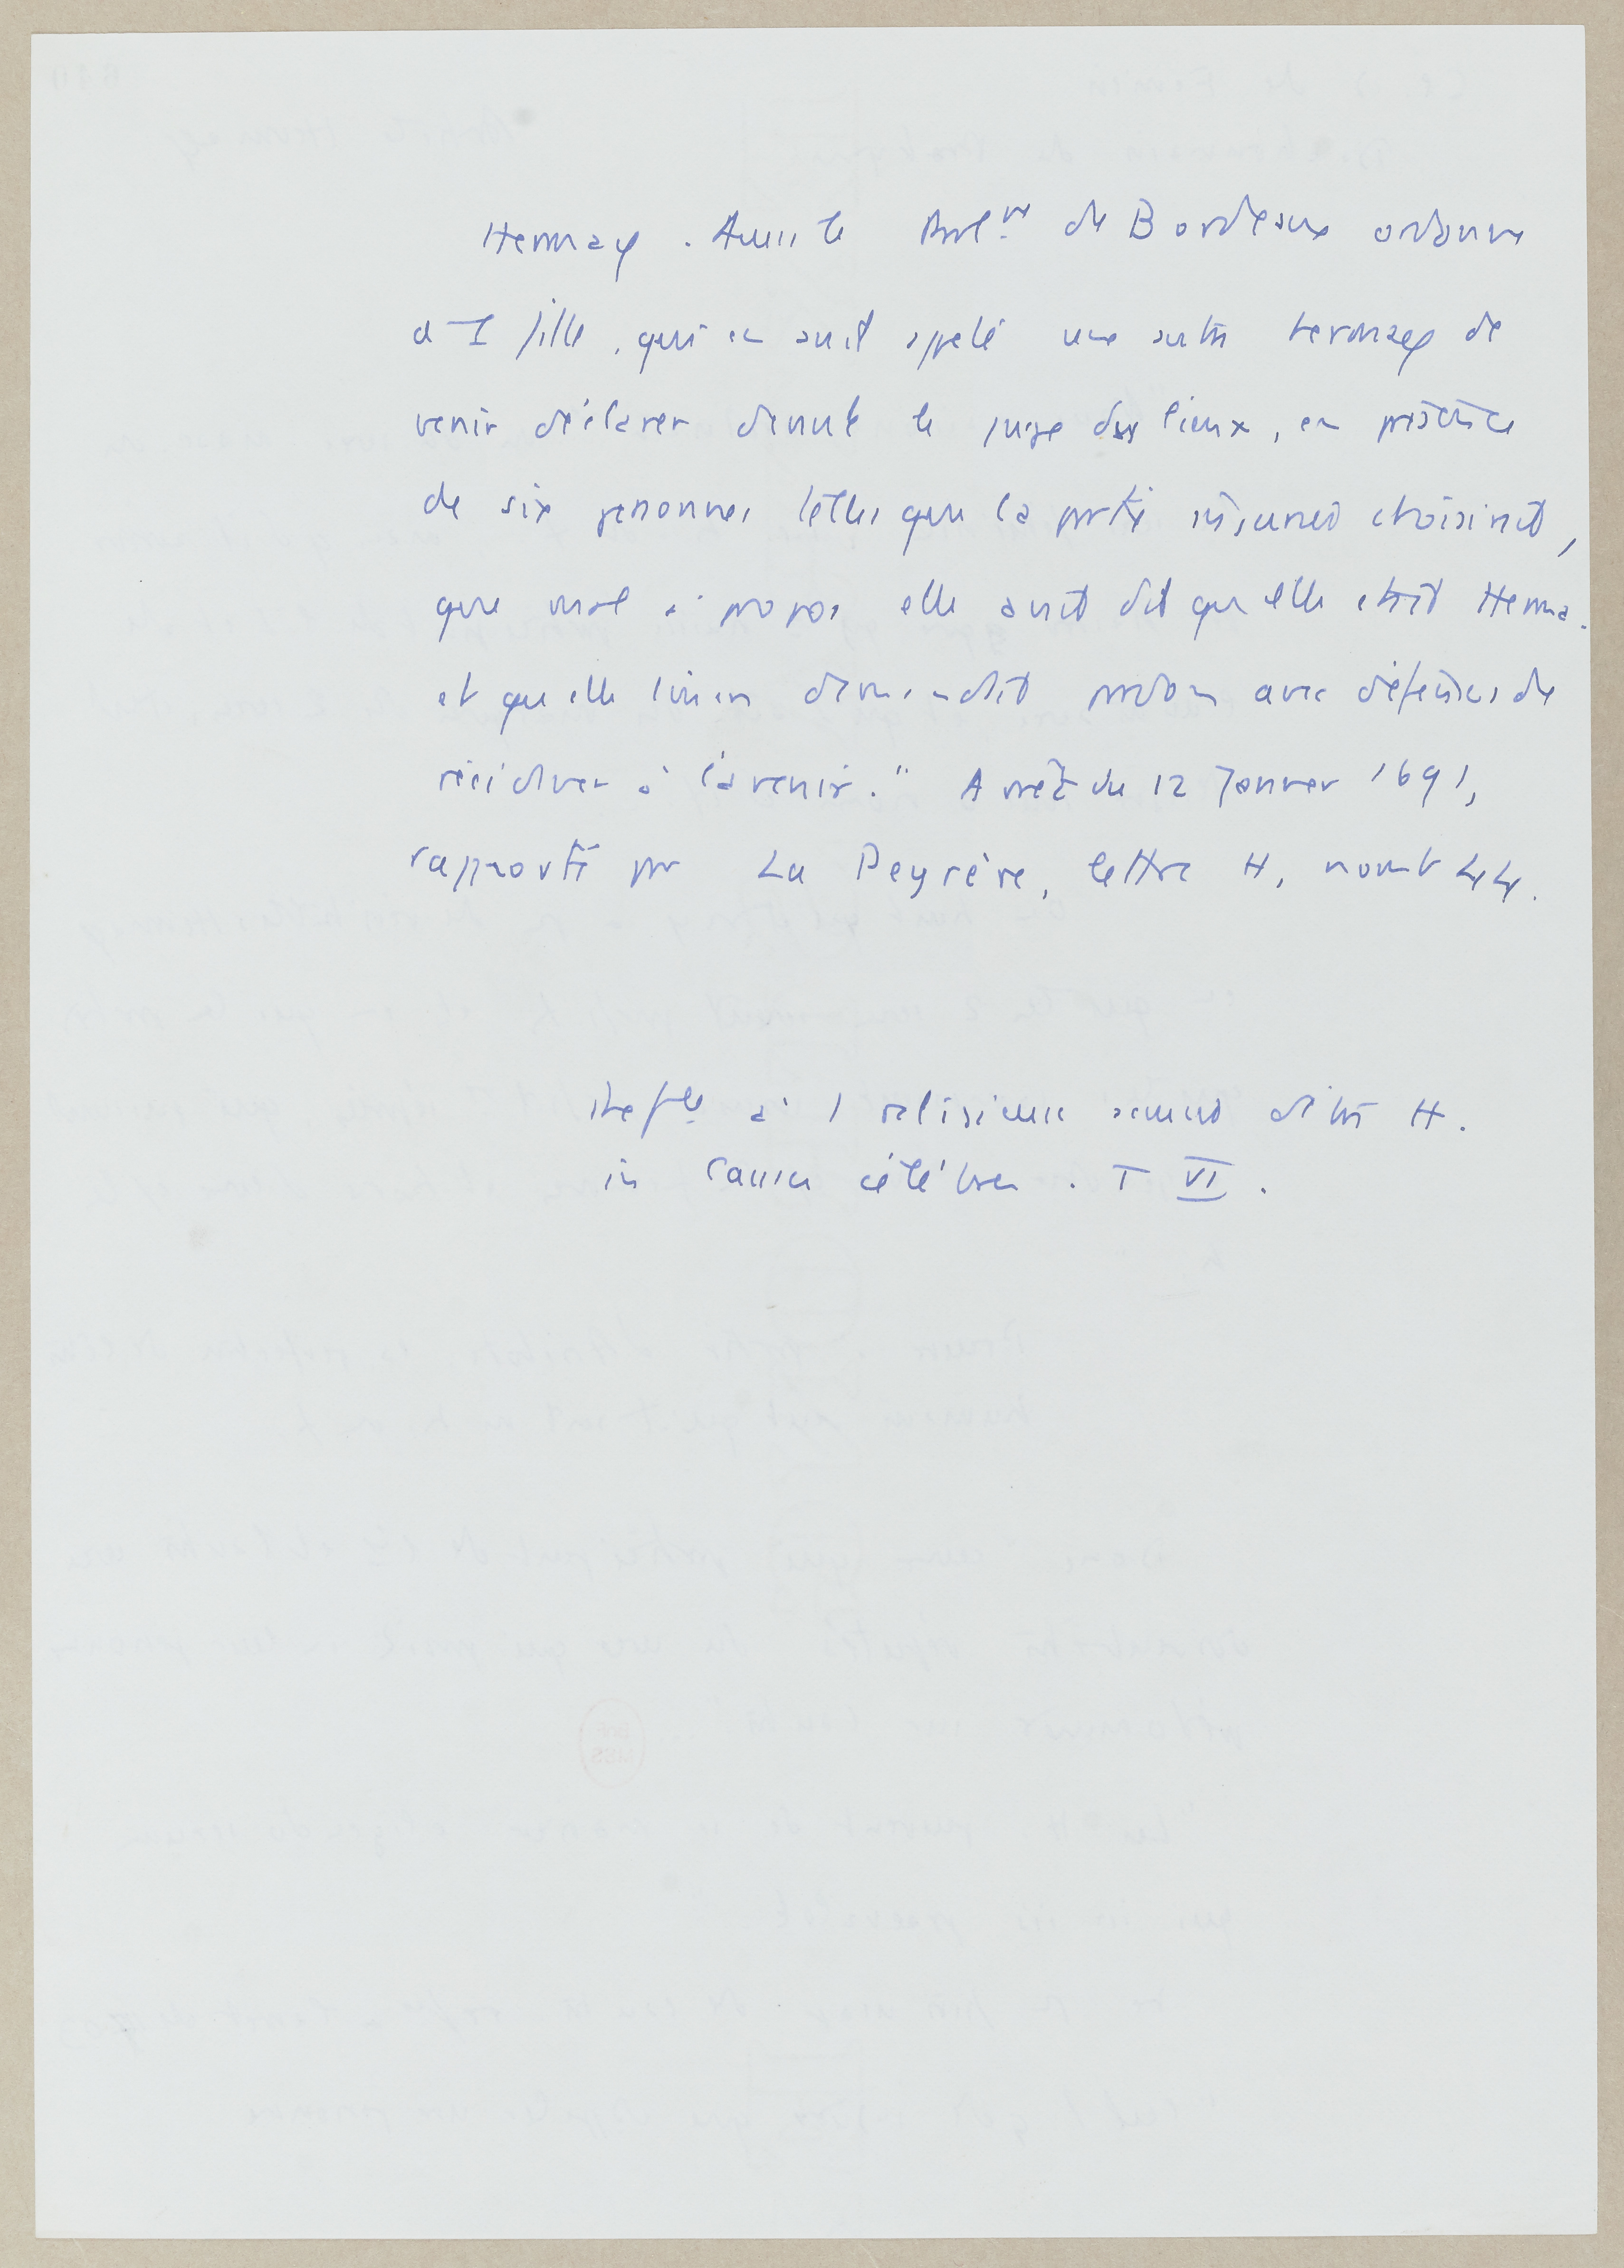 Hermaφ. Aussi le Parl.nt de Bordeaux ordonna
a 1 fille, qui en avait appelé une autre hermaφ de
venir déclarer devant le juge des lieux, en présence
de six personnes telles que la partie choisirait,
que mal à propos elle avait dit qu'elle était Herma.
et qu'elle lui en demandait pardon avec défenses de
récidiver à l'avenir." Arrêt du 12 Janvier 1691,
rapporté par La Peyrère, lettre H, nomb 44.
à 1 religieuse d'être H.
in Causes célèbres. T VI.